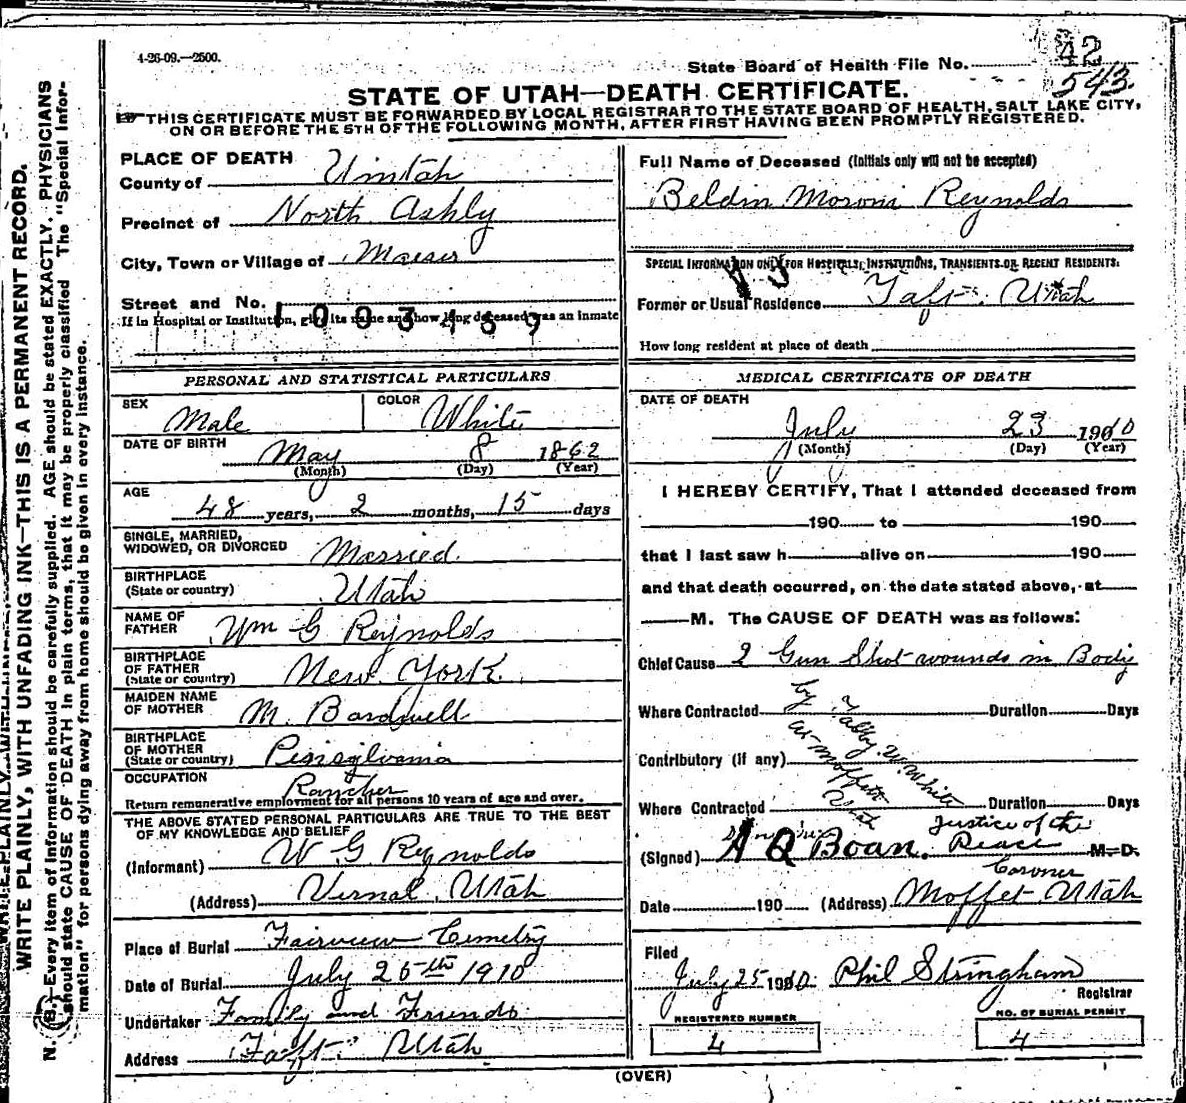 4-26-09.—2500.
State Board of Health File No. 42
543
STATE OF UTAH—DEATH CERTIFICATE.
THIS CERTIFICATE MUST BE FORWARDED BY LOCAL REGISTRAR TO THE STATE BOARD OF HEALTH, SALT LAKE CITY,
ON OR BEFORE THE 5TH OF THE FOLLOWING MONTH, AFTER FIRST HAVING BEEN PROMPTLY REGISTERED.
WRITE PLAINLY, WITH UNFADING INK—THIS IS A PERMANENT RECORD.
N. B.—Every item of information should be carefully supplied. AGE should be stated EXACTLY. PHYSICIANS
should state CAUSE OF DEATH in plain terms, that it may be properly classified. The "Special Infor-
mation" for persons dying away from home should be given in every instance.
PLACE OF DEATH
County of Uintah
Precinct of North Ashly
City, Town or Village of Maeser
Street and No.
1003459
If in Hospital or Institution, give its name and how long deceased was an inmate
PERSONAL AND STATISTICAL PARTICULARS
SEX Male COLOR White
DATE OF BIRTH May 8 1862
(Month) (Day) (Year)
AGE
48 years, 2 months, 15 days
SINGLE, MARRIED,
WIDOWED, OR DIVORCED Married
BIRTHPLACE
(State or country) Utah
NAME OF
FATHER Wm G Reynolds
BIRTHPLACE
OF FATHER
(State or country) New York
MAIDEN NAME
OF MOTHER M. Bardwell
BIRTHPLACE
OF MOTHER
(State or country) Pensylvania
OCCUPATION Rancher
Return remunerative employment for all persons 10 years of age and over.
THE ABOVE STATED PERSONAL PARTICULARS ARE TRUE TO THE BEST
OF MY KNOWLEDGE AND BELIEF
(Informant) W G Reynolds
(Address) Vernal, Utah
Place of Burial Fairview Cemetry
Date of Burial July 25th 1910
Undertaker Family and Friends
Address Taft Utah
Full Name of Deceased (Initials only will not be accepted)
Beldin Moroni Reynolds
SPECIAL INFORMATION ONLY FOR HOSPITALS, INSTITUTIONS, TRANSIENTS OR RECENT RESIDENTS.
Former or Usual Residence Taft. Utah
How long resident at place of death
MEDICAL CERTIFICATE OF DEATH
DATE OF DEATH
July 23 1910
(Month) (Day) (Year)
I HEREBY CERTIFY, That I attended deceased from
190 to 190
that I last saw h alive on 190
and that death occurred, on the date stated above, at
M. The CAUSE OF DEATH was as follows:
Chief Cause 2 Gun Shot wounds in Body
by Tabby W. White
at Moffett
Utah
Where Contracted Duration Days
Contributory (if any)
Where Contracted Duration Days
(Signed) A Q Boan. Justice of the Peace M.D.
Coroner
Date 190 (Address) Moffet Utah
Filed
July 25 1910 Phil Stringham
Registrar
REGISTERED NUMBER
4
NO. OF BURIAL PERMIT
4
(OVER)